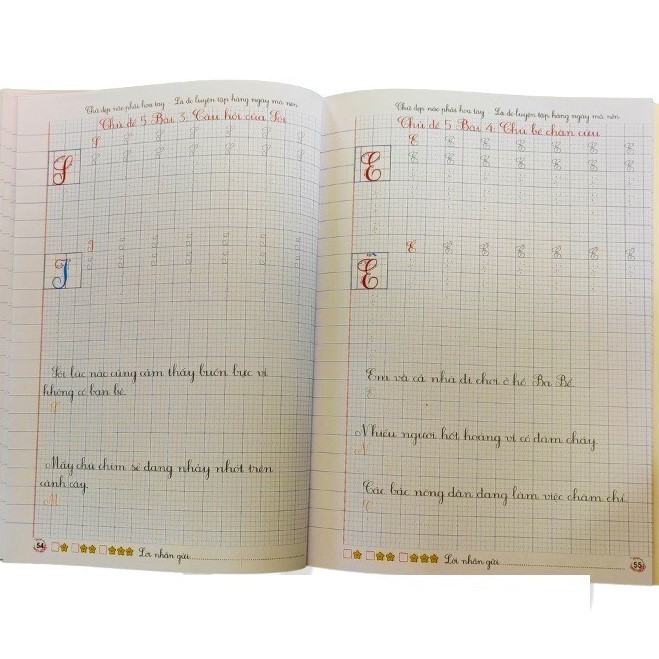 Chữ đẹp nào phải hoa tay - Là do luyện tập hàng ngày mà nên
Chủ đề 5 Bài 3: Câu hỏi của Sói
S
I
Sói lúc nào cũng cảm thấy buồn bực vì
không có bạn bè.
S
Mấy chú chim sẻ đang nhảy nhót trên
cành cây.
M
54
Lời nhắn gửi
Chữ đẹp nào phải hoa tay - Là do luyện tập hàng ngày mà nên
Chủ đề 5 Bài 4: Chú bé chăn cừu
E
Ê
Em và cả nhà đi chơi ở hồ Ba Bể.
E
Nhiều người hốt hoảng vì có đám cháy.
N
Các bác nông dân đang làm việc chăm chỉ.
C
55
Lời nhắn gửi